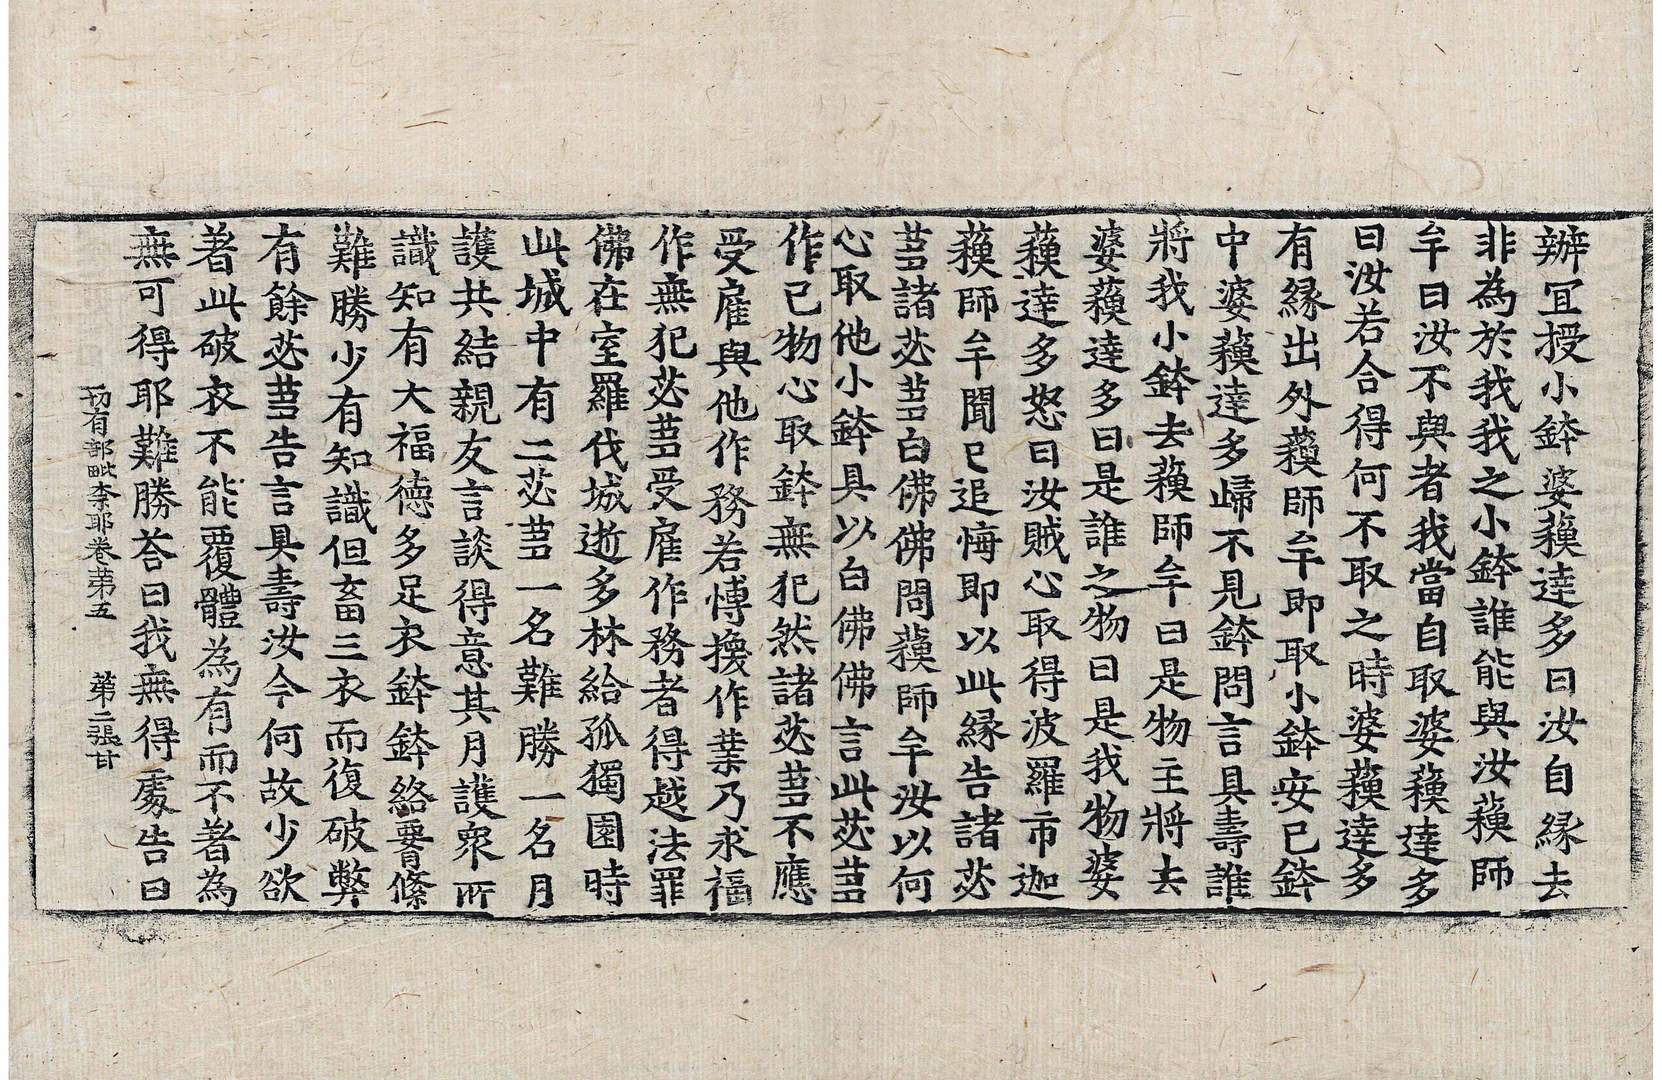 辦冝授小鉢婆蘓達多曰汝自縁去
非為於我我之小鉢誰能與汝蘓師
牟曰汝不與者我當自取婆蘓達多
曰汝若合得何不取之時婆蘓達多
有縁出外蘓師牟即取小鉢安已鉢
中婆蘓達多歸不見鉢問言具壽誰
將我小鉢去蘓師牟曰是物主將去
婆蘓達多曰是誰之物曰是我物婆
蘓達多怒曰汝賊心取得波羅市迦
蘓師牟聞已追悔即以此縁告諸苾
芻諸苾芻白佛佛問蘓師牟汝以何
心取他小鉢具以白佛佛言此苾芻
作已物心取鉢無犯然諸苾芻不應
受雇與他作務若愽換作業乃求福
作無犯苾芻受雇作務者得越法罪
佛在室羅伐城逝多林給孤獨園時
此城中有二苾芻一名難勝一名月
護共結親友言談得意其月護衆所
識知有大福德多足衣鉢鉢絡腰絛
難勝少有知識但畜三衣而復破弊
有餘苾芻告言具壽汝今何故少欲
著此破衣不能覆體為有而不著為
無可得耶難勝荅曰我無得處告曰
切有部毗柰耶卷苐五　苐二張甘